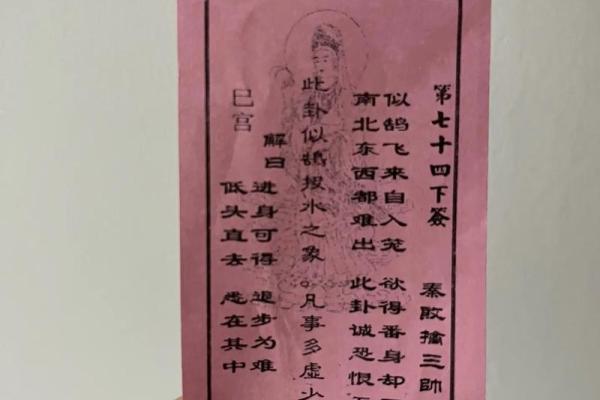 第七十四下签 秦败擒三帥
似鹄飞来自入笼 欲得番身却
南北东西都难出 此卦诚恐恨
此卦似鹄投水之象。凡事多虚少
解曰
进身可得 退步为难
低头直去 悉在其中
巳宫